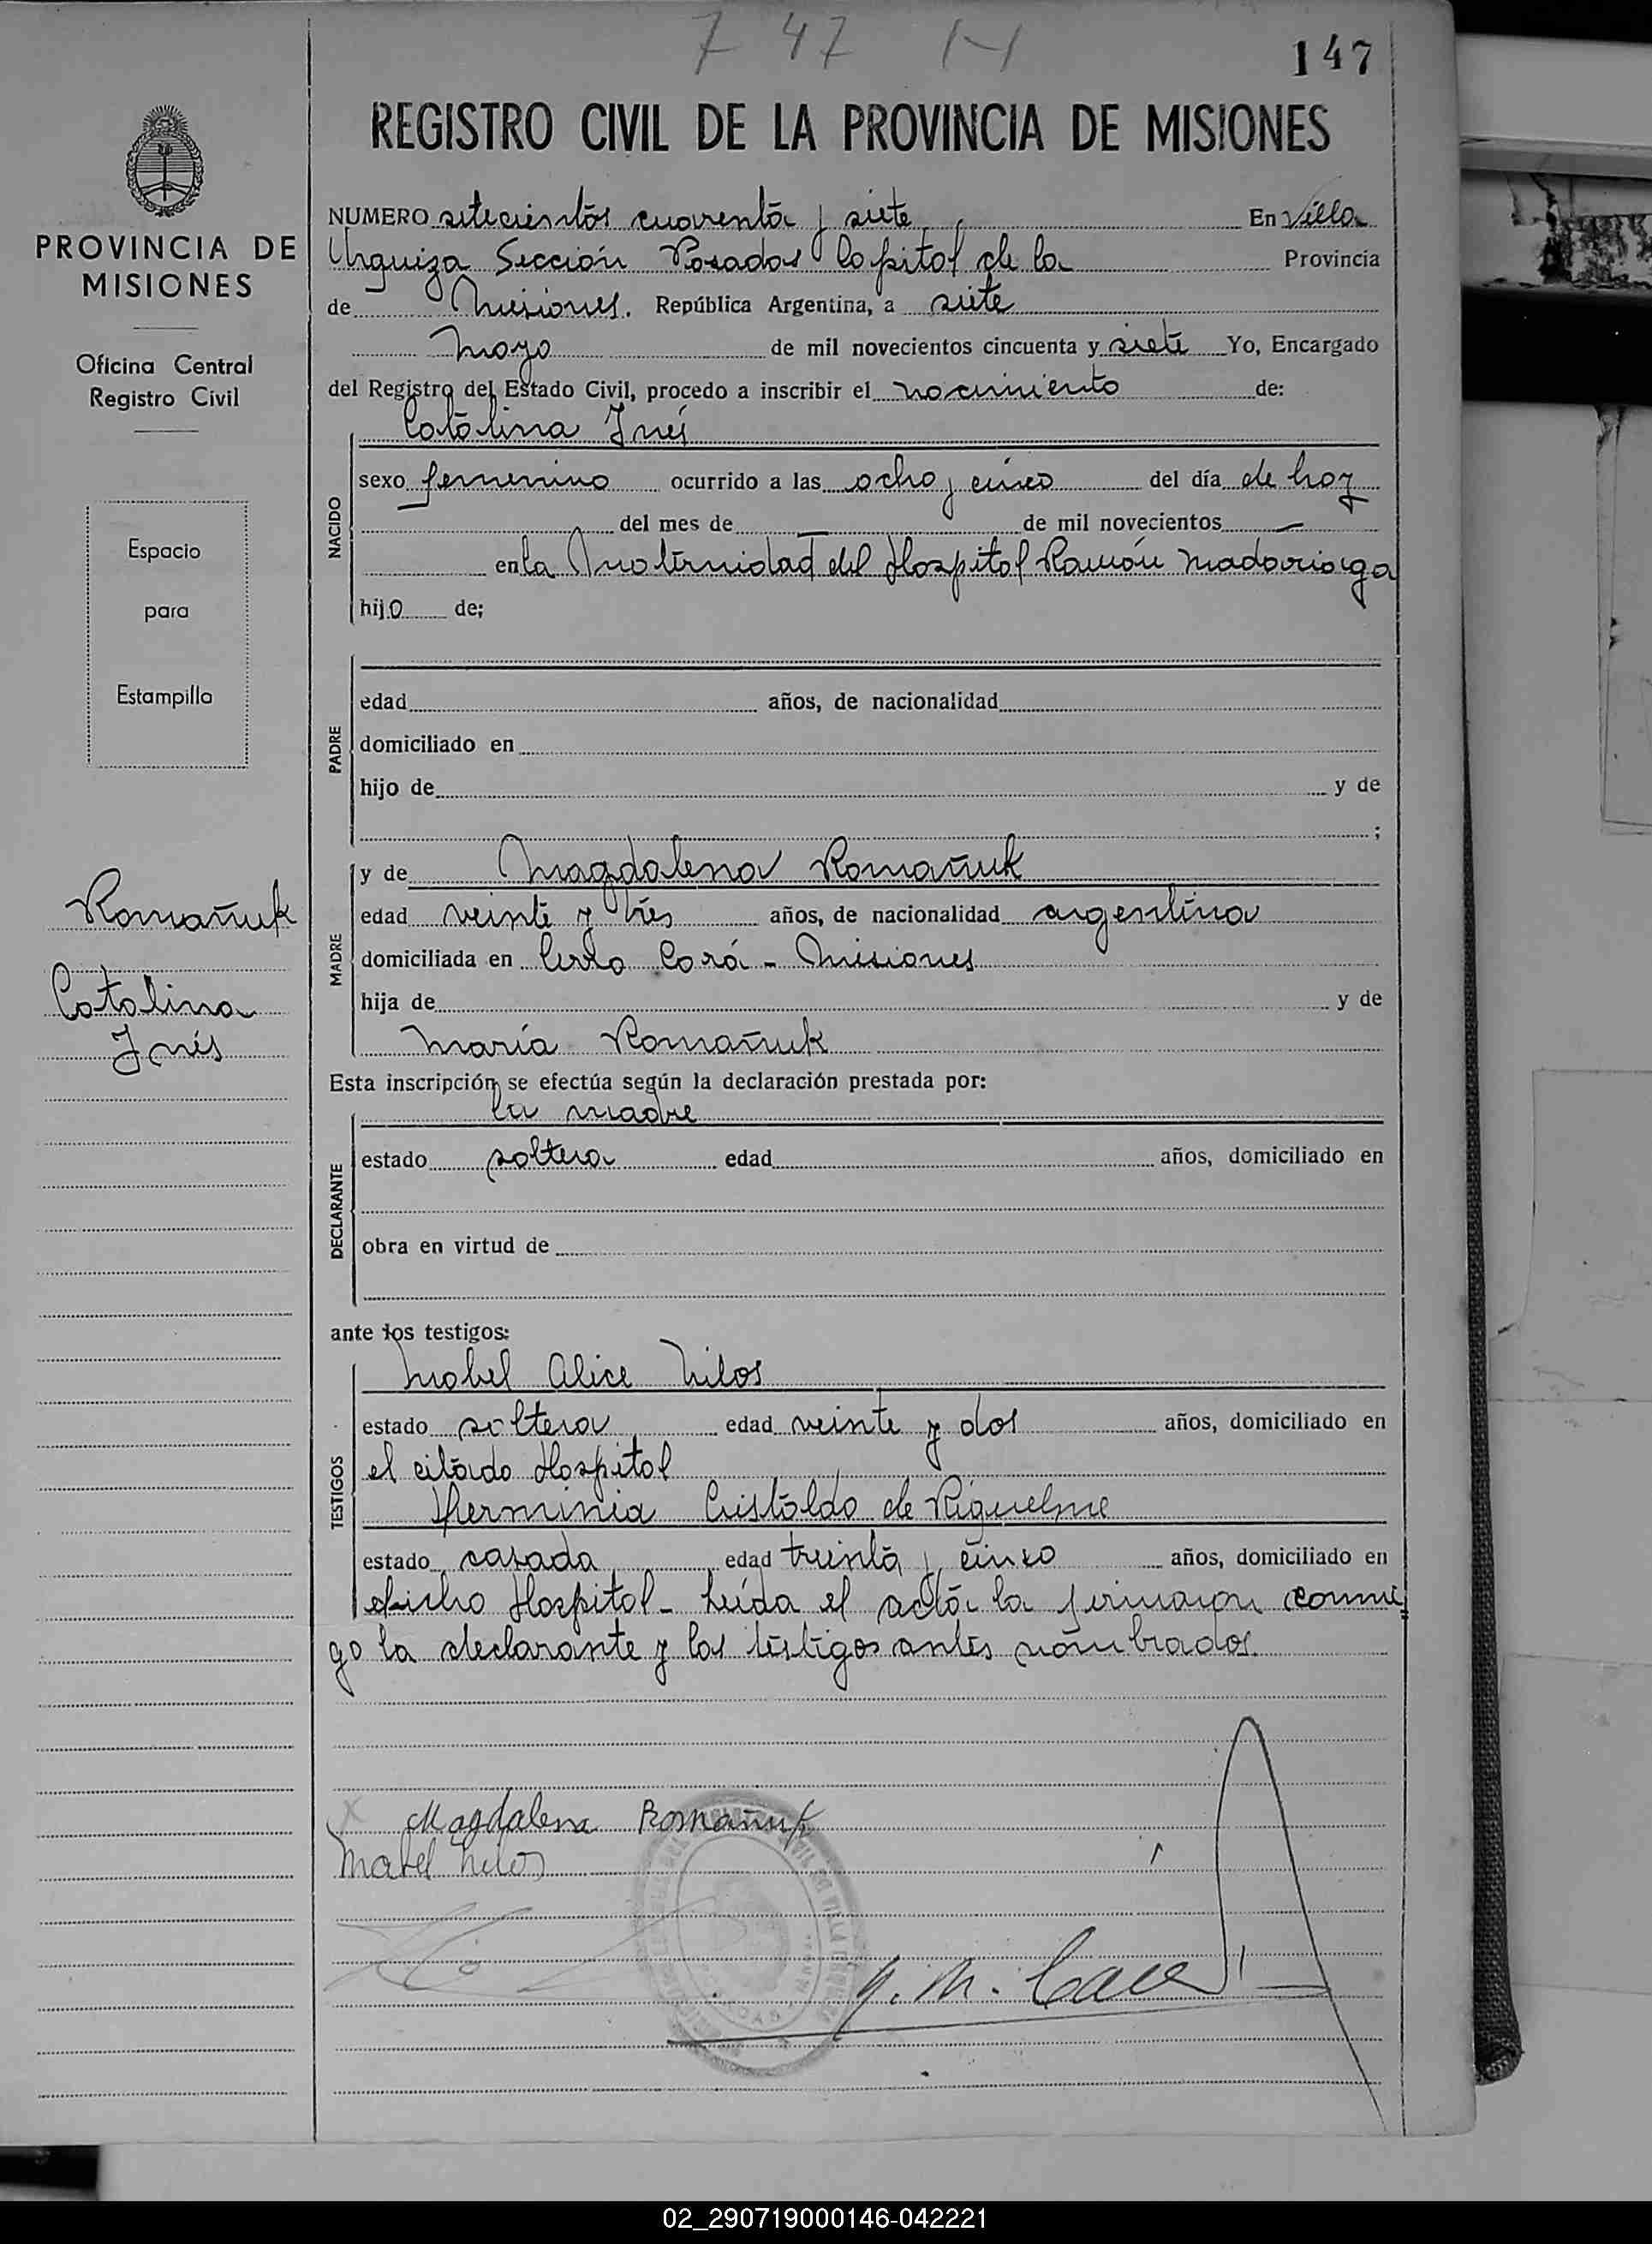 7 47 H
147
REGISTRO CIVIL DE LA PROVINCIA DE MISIONES
PROVINCIA DE
MISIONES
Oficina Central
Registro Civil
Espacio
para
Estampilla
Romañuk
Catalina
Inés
NUMERO setecientos cuarenta y siete En Villa
Urquiza Sección Posadas Capital de la Provincia
de Misiones. República Argentina, a siete
Mayo de mil novecientos cincuenta y siete Yo, Encargado
del Registro del Estado Civil, procedo a inscribir el nacimiento de:
Catalina Inés
NACIDO
sexo femenino ocurrido a las ocho y cinco del día de hoy
del mes de — de mil novecientos —
en la Maternidad del Hospital Ramón Madariaga
hijo de;
PADRE
edad años, de nacionalidad
domiciliado en
hijo de y de
;
MADRE
y de Magdalena Romañuk
edad veinte y tres años, de nacionalidad argentina
domiciliada en Cerro Corá - Misiones
hija de y de
María Romañuk
Esta inscripción se efectúa según la declaración prestada por:
la madre
DECLARANTE
estado soltera edad años, domiciliado en
obra en virtud de
ante los testigos:
TESTIGOS
Mabel Alice Milos
estado soltera edad veinte y dos años, domiciliado en
el citado Hospital
Herminia Cristaldo de Riquelme
estado casada edad treinta y cinco años, domiciliado en
dicho Hospital - Leída el acta la firmaron conmi=
go la declarante y los testigos antes nombrados.
X Magdalena Romañuk
Mabel Milos
02_290719000146-042221